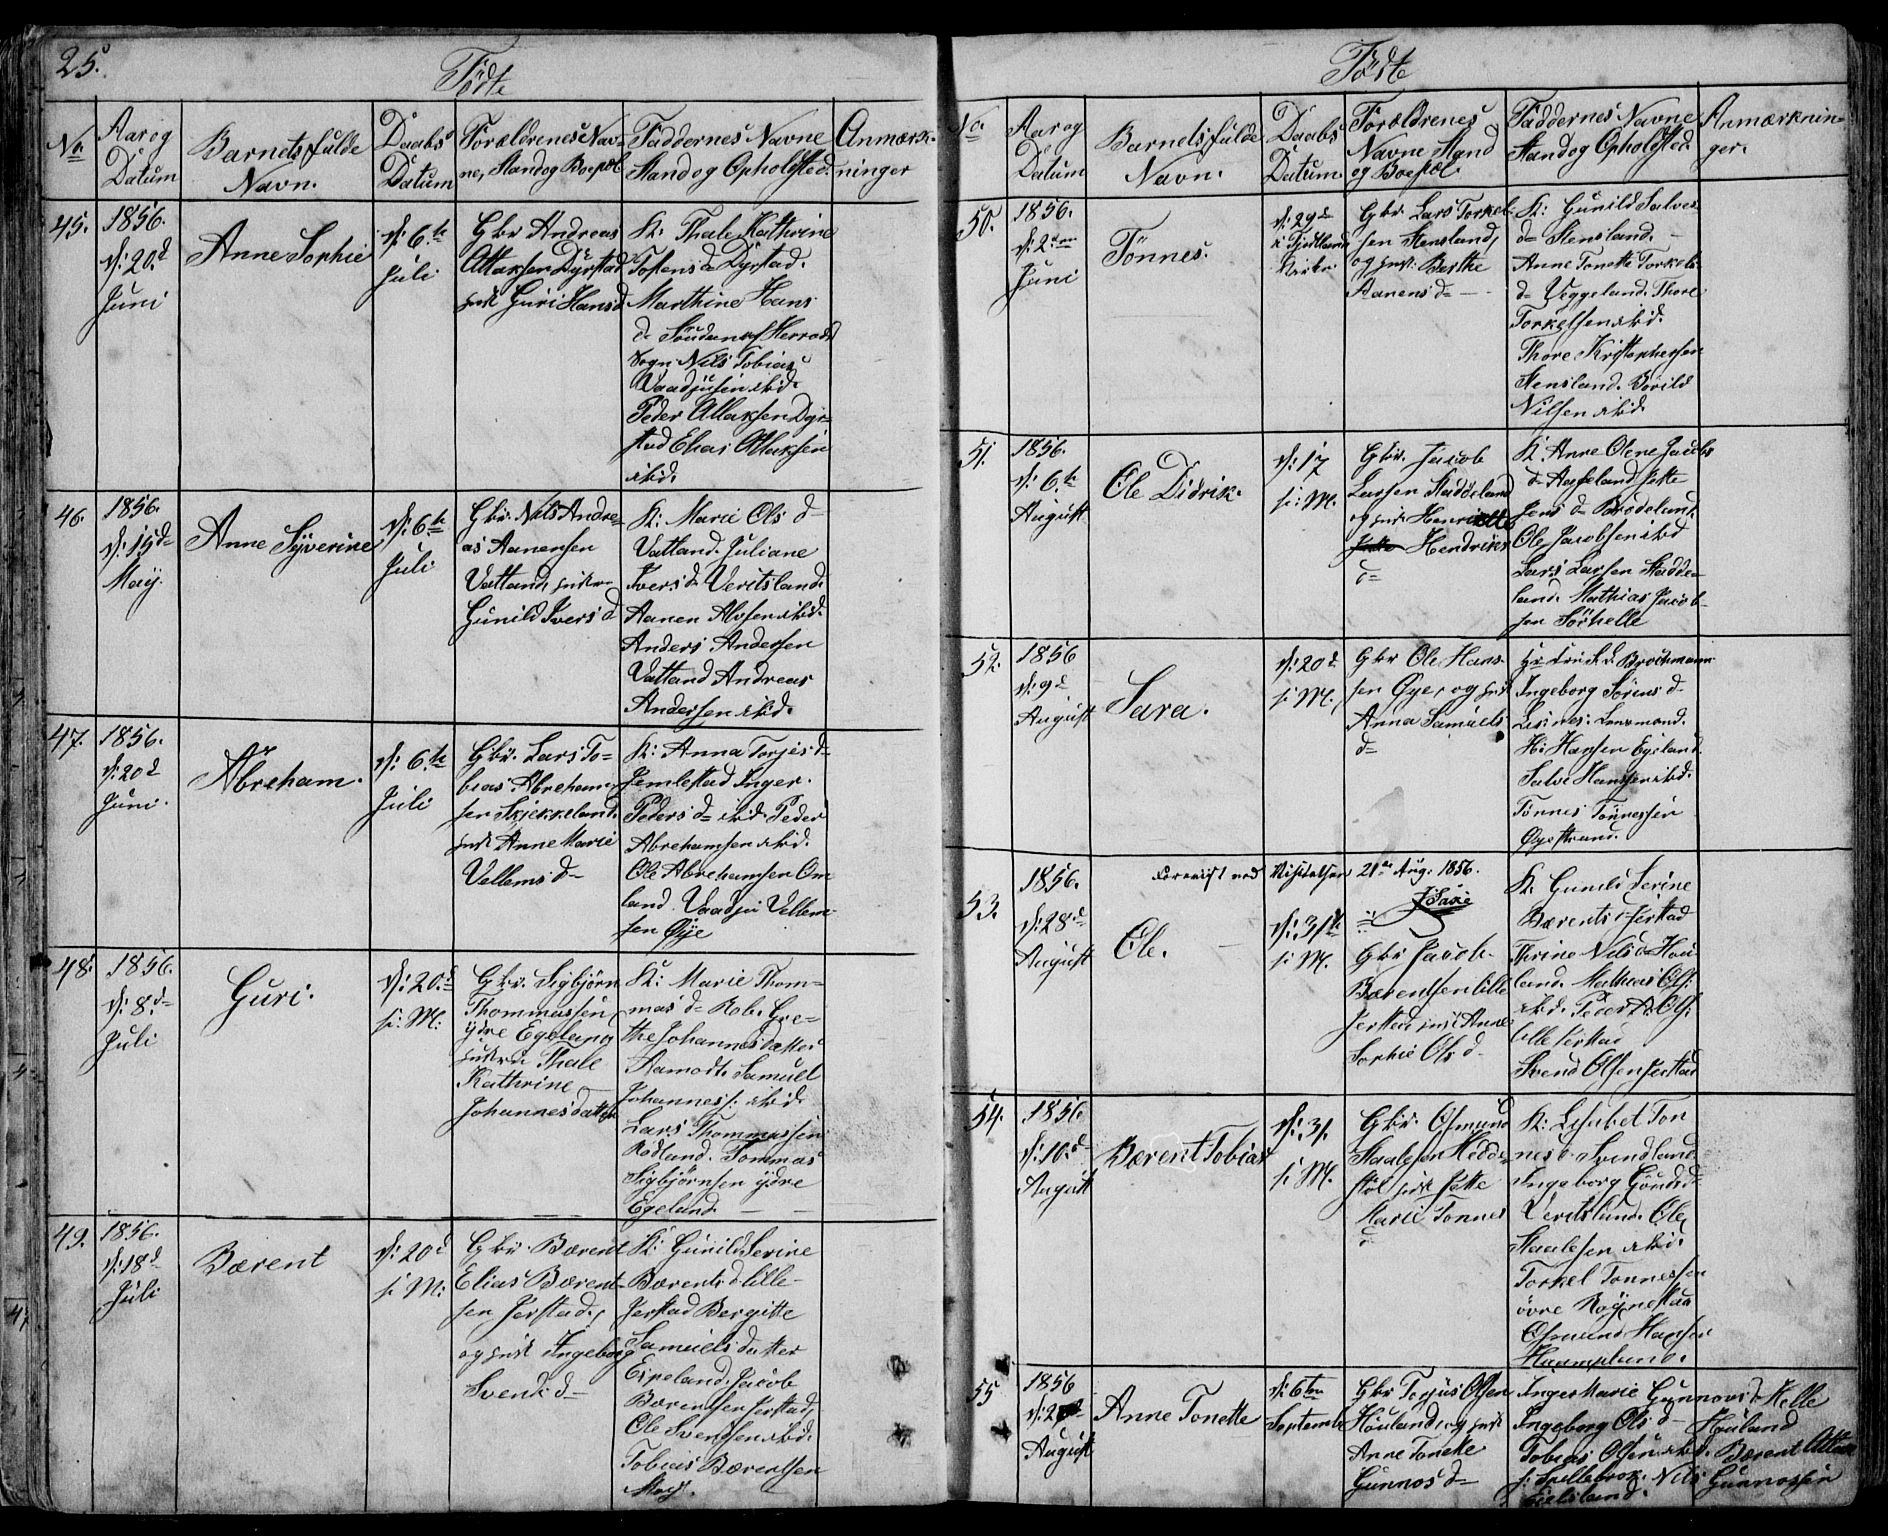 25.
Födte
No
Aar og
Datum
Barnets fulde
Navn.
Daabs
Datum
Forældrenes Nav-
ne, Stand og Boepæl
Faddernes Navne
Stand og Opholdsted.
Anmærk-
ninger
45.
1856.
d: 20.d
Juni
Anne Sophie
d: 6.te
Juli
Gbr Andreas
Attaksen Dyrstad
Guri Hansd
K: Thale Kathrine
Tostensd Dyrstad.
Marthine Hans
d Herrads
Sogn Nils Tobias
ibid.
Peder Attaksen Dyr-
stad Elias Attaksen
ibid.
46.
1856.
d: 15d
May.
Anne Syverine
d: 6.te
Juli
Gbr. Nils Andre-
as Aanensen
Vatland,
Gunild Ivers d
K: Marie Ols d
Vatland. Juliane
Ivers d. Veritsland.
Aanen Alvsen ibid.
Anders Andersen
Vatland Andreas
Andersen ibid.
47.
1856.
d: 20d
Juni.
Abreham.
d: 6.te
Juli
Gbr. Lars To-
bias Abreham-
sen Skjekkeland.
Anne Marie
Vellems d
K: Anna Torjes d
Jemlestad Inger.
Peders d ibid Peder
Abrehamsen ibid.
Ole Abrehamsen Om-
land. Vaadju Vellem-
sen Øÿe
48.
1856.
d: 8.d
Juli
Guri.
d: 20.d
s: M:
Gbr. Sigbjörn
Thommassen
ydre Egeland
Thale
Kathrine
Johannesdatter
K: Marie Thom-
mas d Rob. Gre-
the Johannesdatter
Aamodt. Samuel
Johanness: ibid.
Lars Thommassen
Rödland. Tommas
Sigbjörnsen ydre
Egeland
49.
1856.
d: 18d
Juli
Bærent
d: 20d
s: M:
Gbr. Bærent
Elias Bærent-
sen Jerstad,
og Ingeborg
Svends d
K: Gunild Serine
Bærents d lille-
Jerstad Bergitte
Samuels datter
Espeland. Jacob
Bærensen Jerstad,
Ole Svendsen ibid.
Tobias Bærentsen
Moy.
Födte
No.
Aar og
Datum
Barnets fulde
Navn.
Daabs
Datum
Forældrenes
Navne Stand
og Boepæl
Faddernes Navne
Stand og Opholdsted.
Anmærknin-
ger.
50.
1856.
d: 2den
Juni
Tönnes.
d: 29d
i Fjotland
Kirke.
Gbr. Lars Torkel-
sen Stensland,
og Berthe
Aanens d
K: Gunild Salves
d Stensland.
Anne Tonette Torkels
d Veggeland. Thore
Torkelsen ibid.
Thore Kristophersen
Stensland. Borild
Nilsen ibid.
51.
1856.
d: 6.te
August
Ole Didrik.
d: 17
s: M.
Gbr. Jacob
Larsen Staddeland
og Henriette
Hendriks
d
K. Anne Olene Jacobs
d Aapeland Jette
Jens d Brodeland.
Ole Jacobsen ibid
Lars Larsen Stadde-
land. Mathias Jacob-
sen Sörhelle
52.
1856
d: 9d
August
Sara.
d: 20d
s: M.
Gbr Ole Hans-
sen Øye, og
Anna Samuels
d
Brochmann
Ingeborg Sörens d
Lensmand.
Hansen Egeland.
Salve Hanssen ibid.
Tönnes Tönnessen
Øyestrand.
Foreviist ved Visitatsen 21de Aug. 1856.
53.
1856.
d: 28d
August
Ole.
d: 31te
s: M.
Gbr Jacob
Bærentsen lille
Jerstad Anne
Sophie Ols d
K. Gunild Serine
Bærents d Jerstad
Thrine Nils d Hou-
land. Mathias Ols:
ibid. Peder A. Ols:
lille Jerstad
Svend Olsen Jerstad
54.
1856.
d: 10.d
August
Bærent Tobias
d: 31.
s: M.
Gbr. Osmund
Staalesen Hedde-
stöl Jette
Marie Tonnes
d
K: Lisabet Ton
nes d Svendland
Ingeborg Gunds d
Veritsland. Ole
Staalesen ibid.
Torkel Tonnessen
övre Röynestad
Osmund Hansen
Haampland.
55
1856
August
Anne Tonette
d: 6te
Septemb
Gbr Torjus Olsen
Houland og
Anne Tonette
Gunnos d
Inger Marie Gunnovs d Helle
Ingeborg Ols d Houland
Tobias Olsen ibid. Bærent Attak
s: Spellebrok. Nils Gunnossen